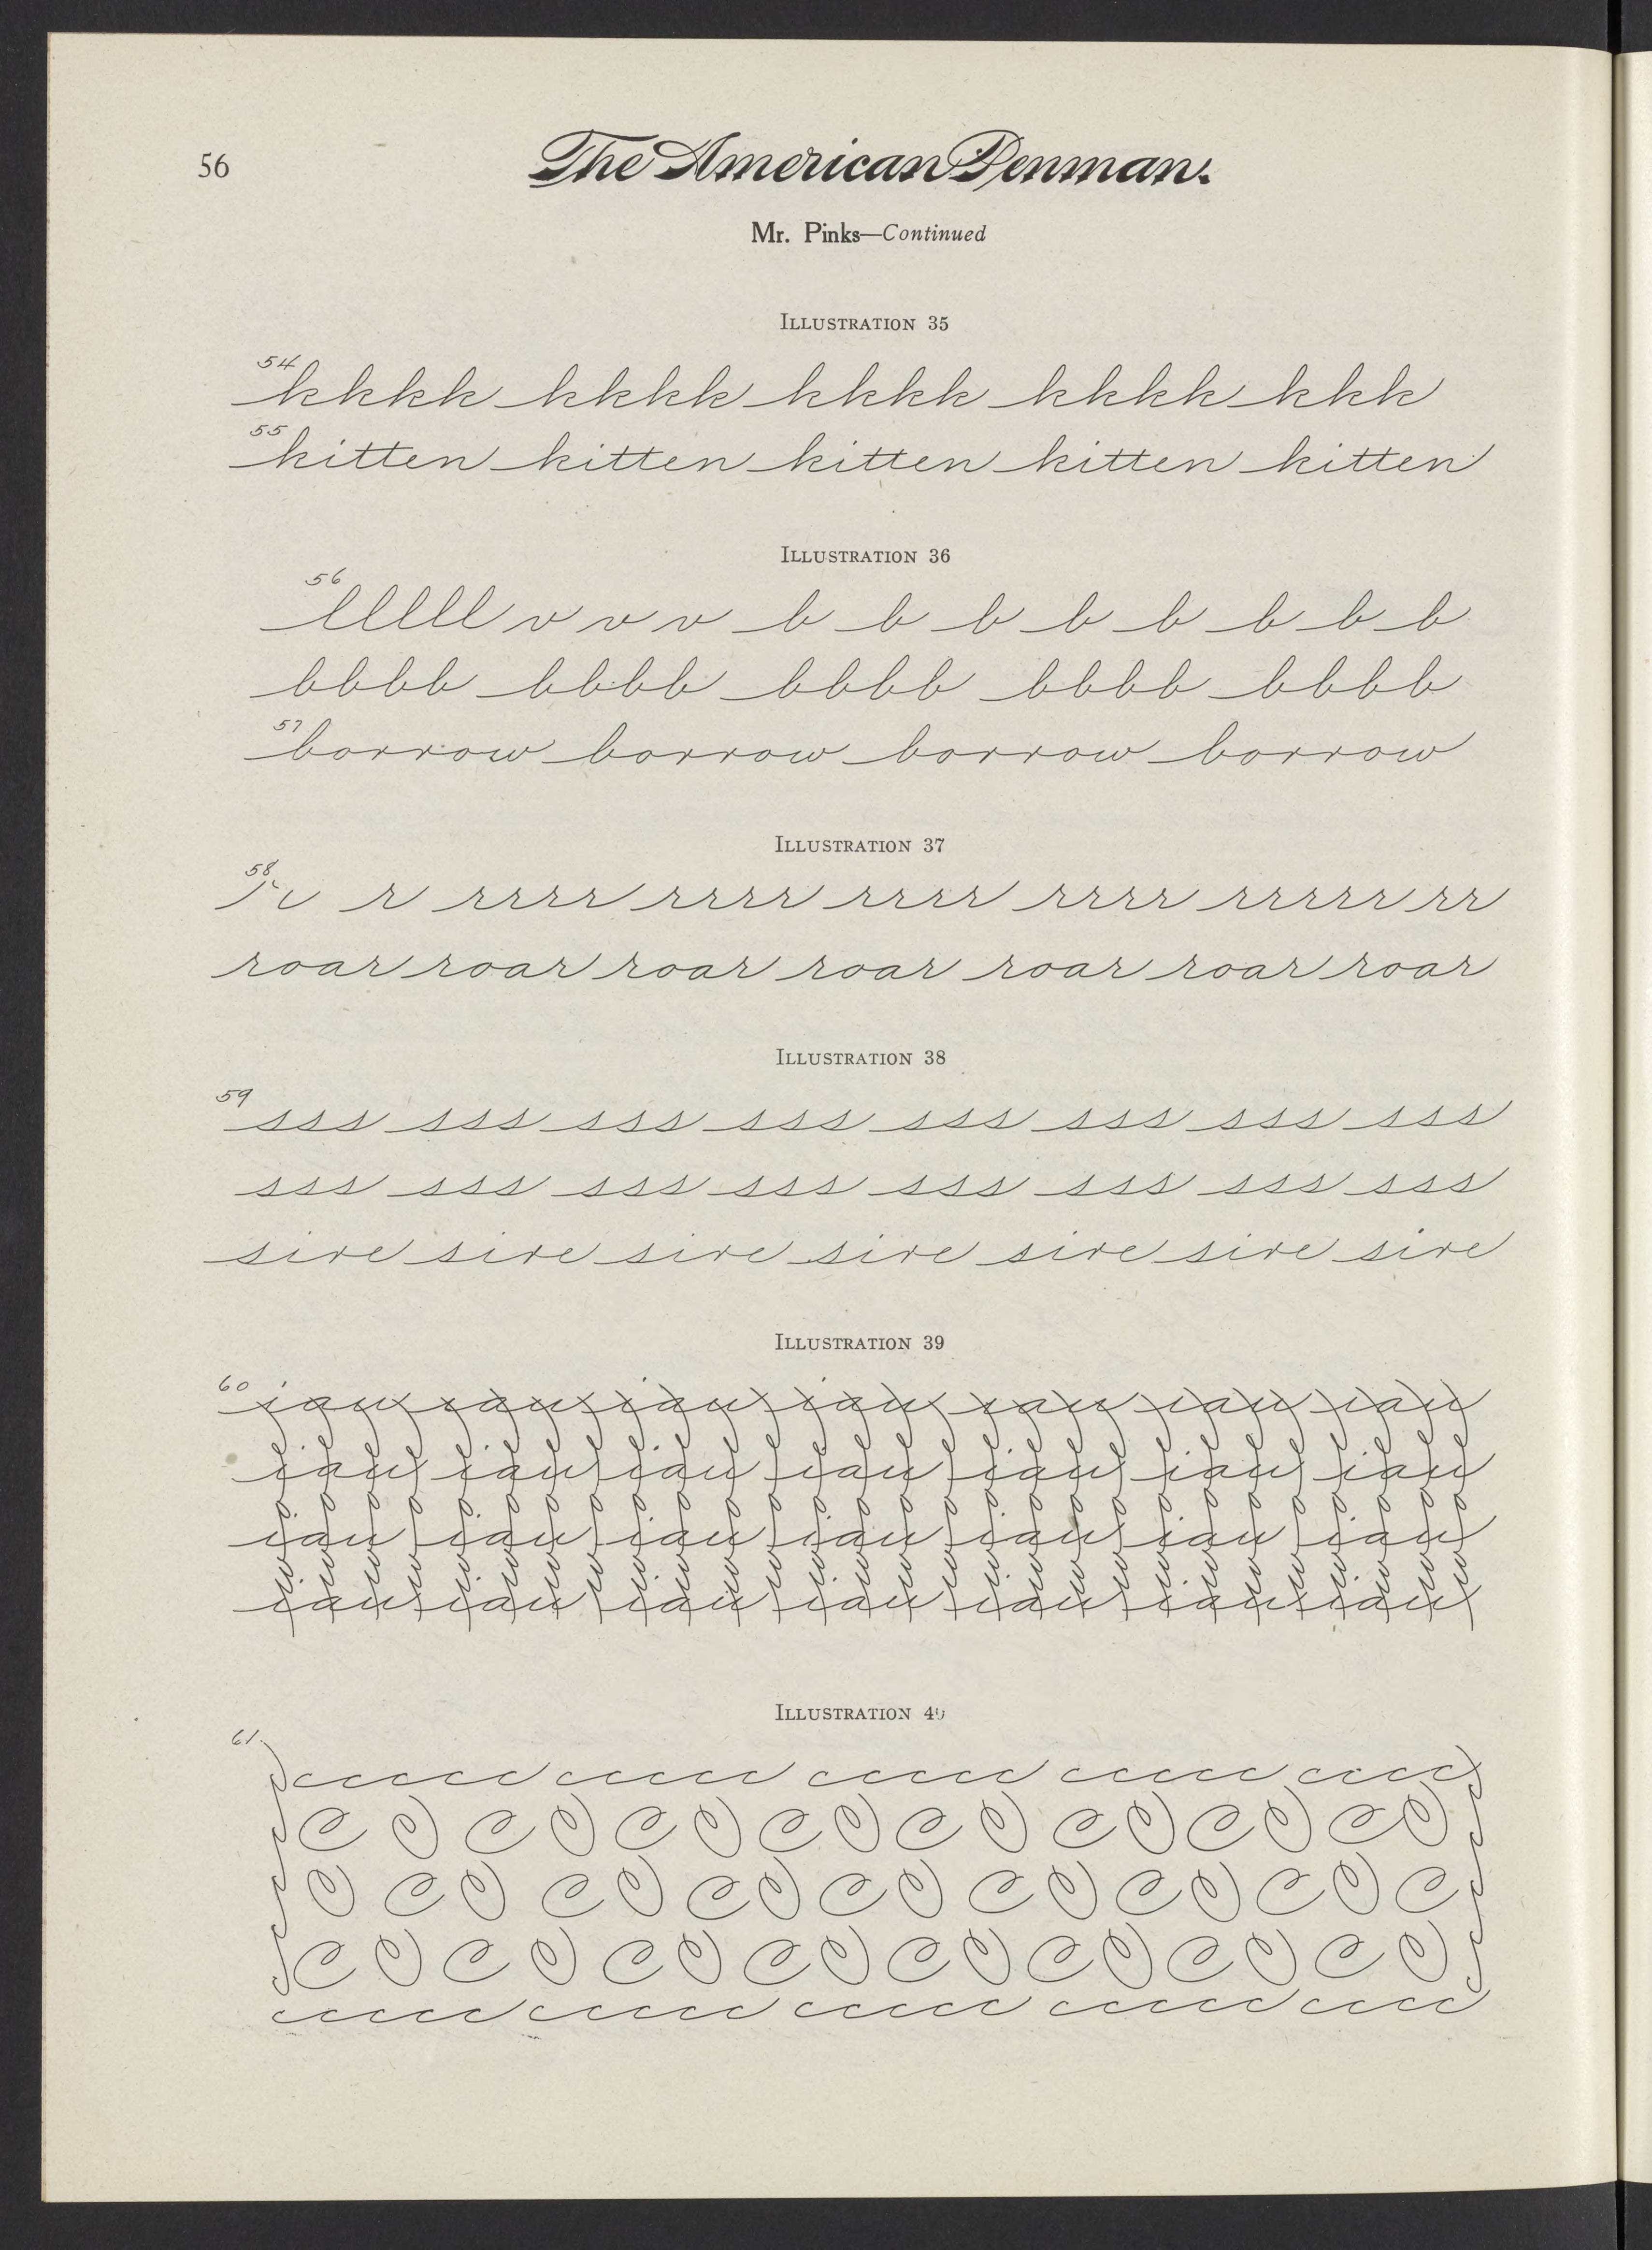 56
The American Penman.
Mr. Pinks—Continued
Illustration 35
54 kkkk kkkk kkkk kkkk kkk
55 kitten kitten kitten kitten kitten
Illustration 36
56 lllll v v v b b b b b b b b
bbbb bbbb bbbb bbbb bbbb
57 borrow borrow borrow borrow
Illustration 37
58 r rrrr rrrr rrrr rrrr rrrrr rr
roar roar roar roar roar roar roar
Illustration 38
59 sss sss sss sss sss sss sss sss
sss sss sss sss sss sss sss sss
sire sire sire sire sire sire sire
Illustration 39
60 iau iau iau iau iau iau iau
iau iau iau iau iau iau iau
iau iau iau iau iau iau iau
iau iau iau iau iau iau iau
Illustration 40
61 ccccc ccccc ccccc ccccc cccc
c c c c c c c c c c c c c c c c
c c c c c c c c c c c c c c c
c c c c c c c c c c c c c c c c
ccccc ccccc ccccc ccccc cccc